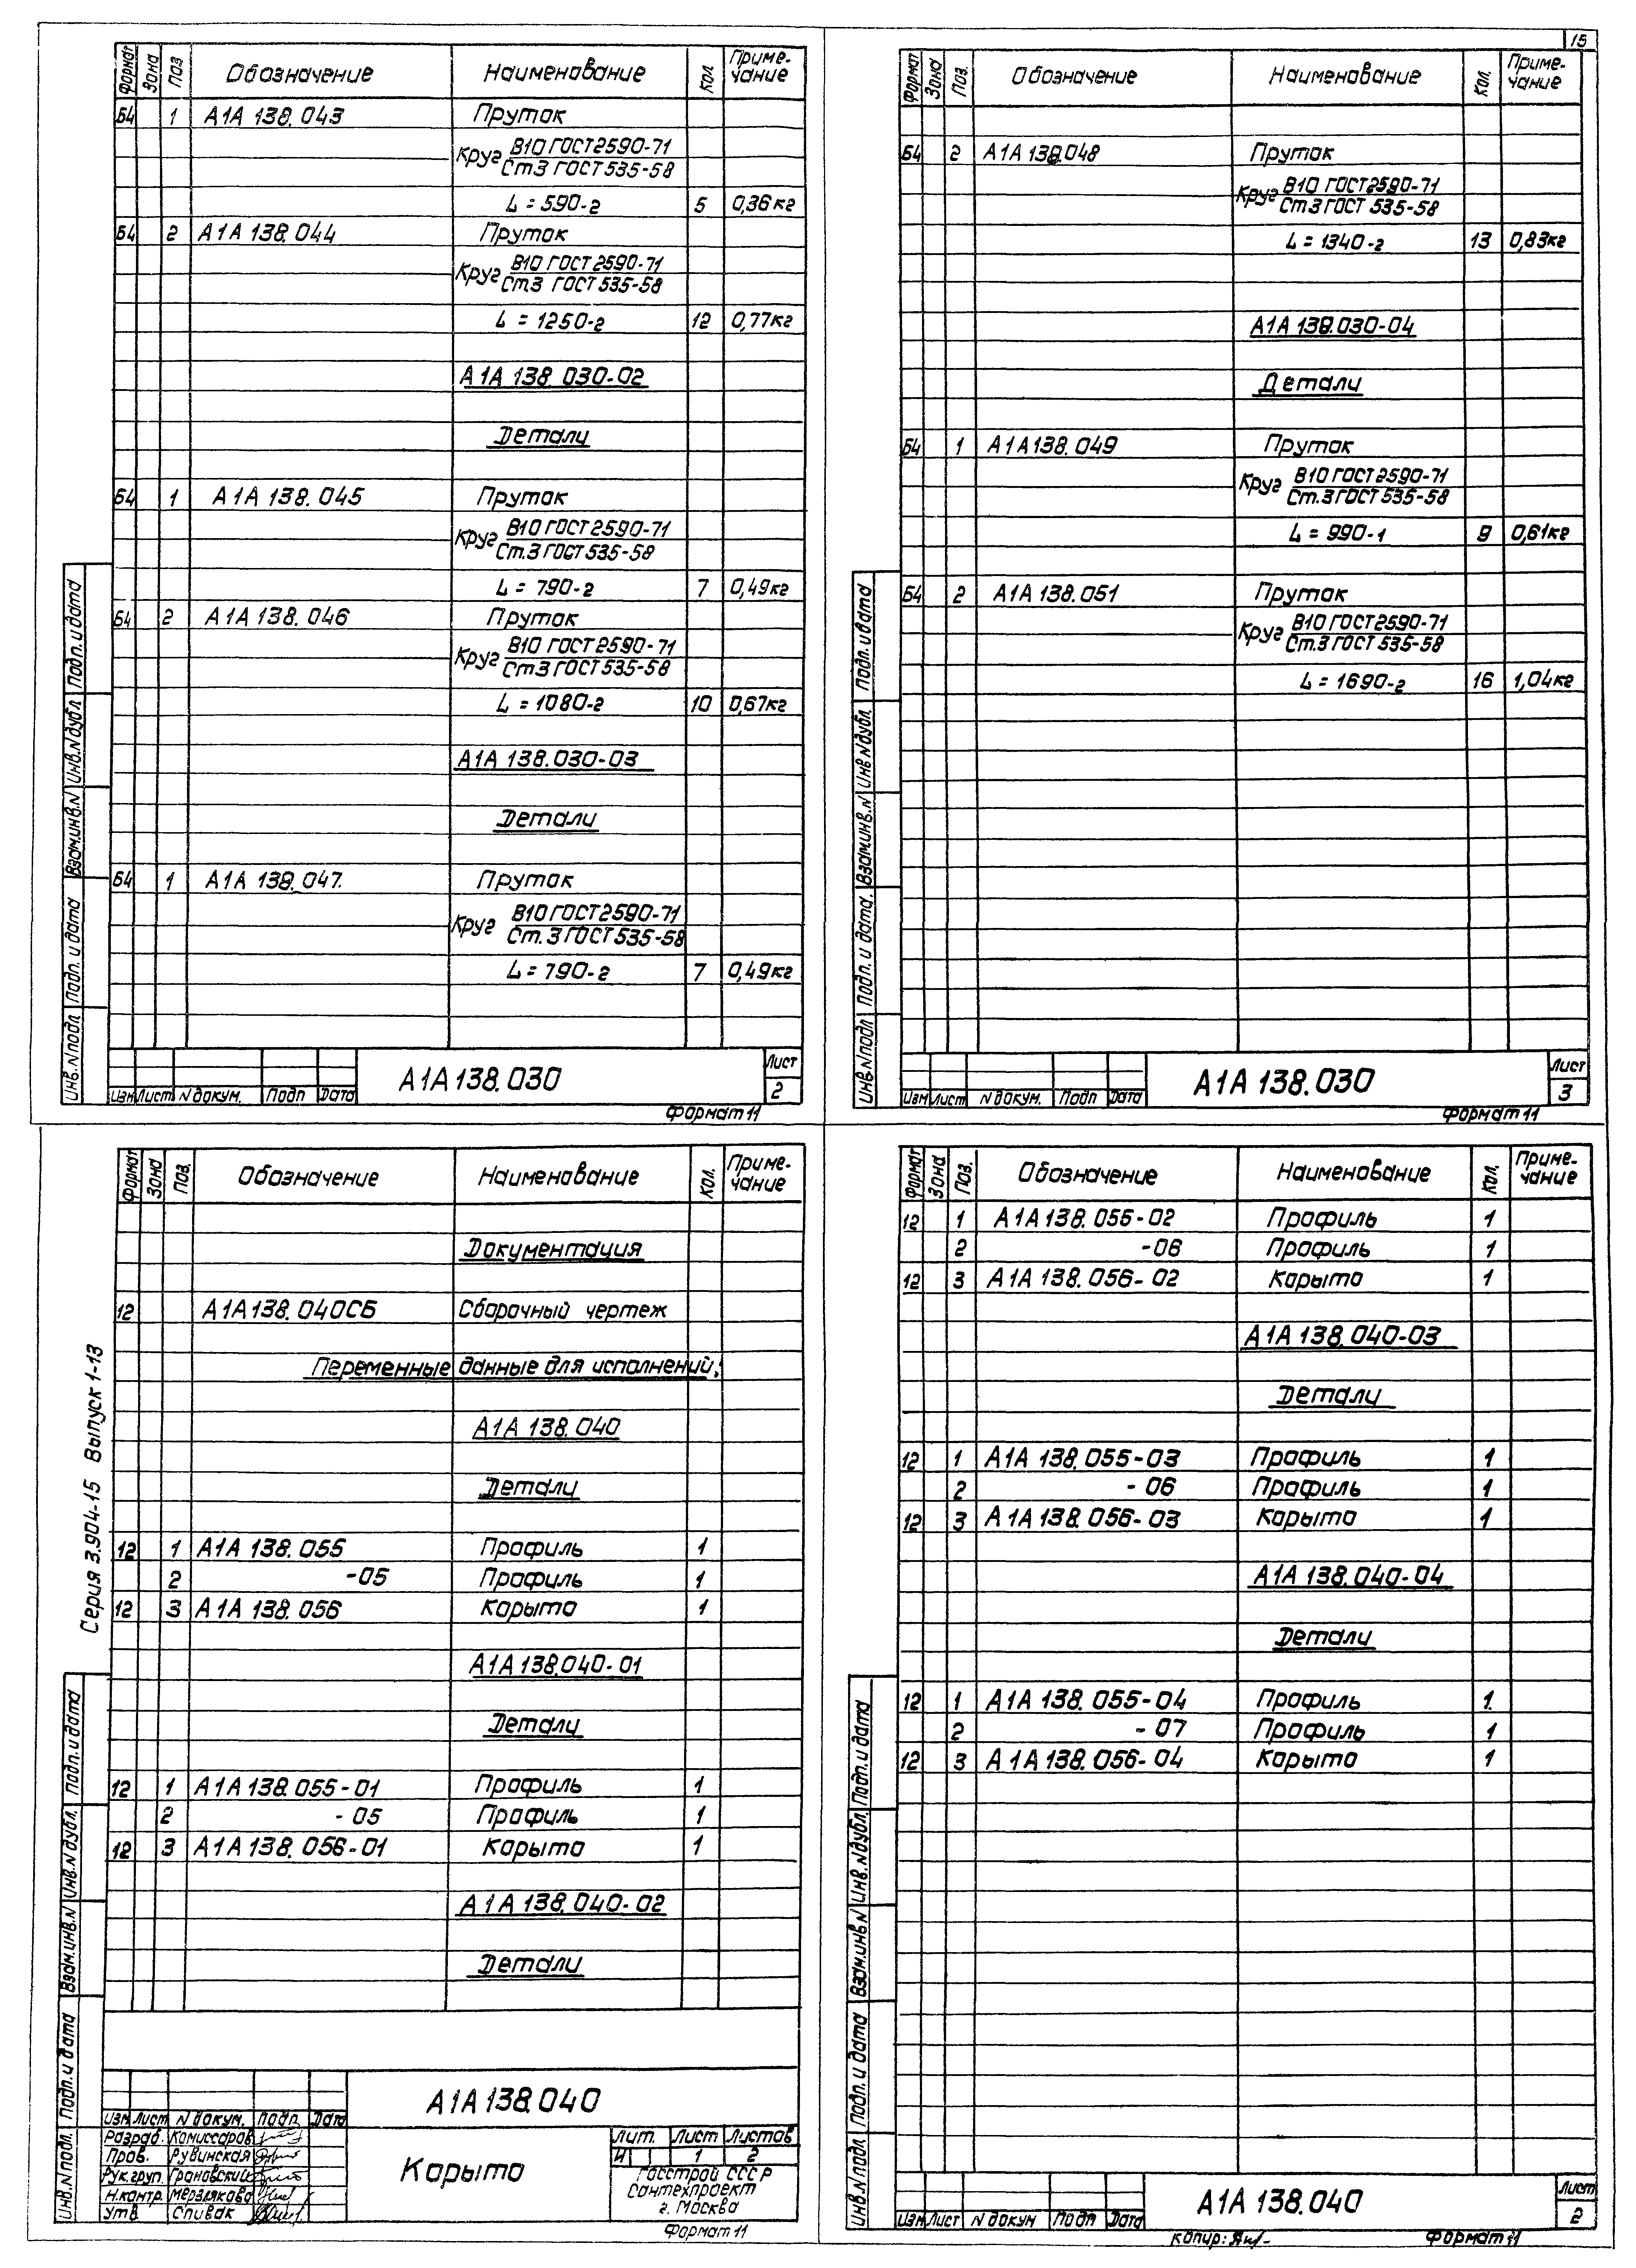 15
Формат Зона Поз. Обозначение Наименование Кол. Приме-
чание
Б4 1 А1А 138.043 Пруток
Круг В10 ГОСТ 2590-71
Ст.3 ГОСТ 535-58
L = 590-г 5 0,36кг
Б4 2 А1А 138.044 Пруток
Круг В10 ГОСТ 2590-71
Ст.3 ГОСТ 535-58
L = 1250-г 12 0,77кг
А1А 138.030-02
Детали
Б4 1 А1А 138.045 Пруток
Круг В10 ГОСТ 2590-71
Ст.3 ГОСТ 535-58
L = 790-г 7 0,49кг
Б4 2 А1А 138.046 Пруток
Круг В10 ГОСТ 2590-71
Ст.3 ГОСТ 535-58
L = 1080-г 10 0,67кг
А1А 138.030-03
Детали
Б4 1 А1А 138.047. Пруток
Круг В10 ГОСТ 2590-71
Ст.3 ГОСТ 535-58
L = 790-г 7 0,49кг
Инв.N подл Подп. и дата Взам.инв.N Инв.N дубл. Подп. и дата
Изм Лист N докум. Подп Дата
А1А 138.030
Лист
2
Формат 11
Формат Зона Поз. Обозначение Наименование Кол. Приме-
чание
Б4 2 А1А 138.048 Пруток
Круг В10 ГОСТ 2590-71
Ст.3 ГОСТ 535-58
L = 1340-г 13 0,83кг
А1А 138.030-04
Детали
Б4 1 А1А 138.049 Пруток
Круг В10 ГОСТ 2590-71
Ст.3 ГОСТ 535-58
L = 990-1 9 0,61кг
Б4 2 А1А 138.051 Пруток
Круг В10 ГОСТ 2590-71
Ст.3 ГОСТ 535-58
L = 1690-г 16 1,04кг
Инв.N подл Подп. и дата. Взам.инв.N Инв.N дубл. Подп. и дата
Изм Лист N докум. Подп Дата
А1А 138.030
Лист
3
Формат 11
Формат Зона Поз. Обозначение Наименование Кол. Приме-
чание
Документация
12 А1А 138.040СБ Сборочный чертеж
Переменные данные для исполнений:
А1А 138.040
Детали
12 1 А1А 138.055 Профиль 1
2 -05 Профиль 1
12 3 А1А 138.056 Корыто 1
А1А 138.040-01
Детали
12 1 А1А 138.055-01 Профиль 1
2 -05 Профиль 1
12 3 А1А 138.056-01 Корыто 1
А1А 138.040-02
Детали
Серия 3.904-15 Выпуск 1-13
Инв.N подл. Подп. и дата Взам.инв.N Инв.N дубл. Подп. и дата
А1А 138.040
Изм Лист N докум. Подп Дата
Разраб. Комиссаров
Пров. Рувинская
Рук.груп. Грановский
Н.контр. Мерзлякова
Утв. Спивак
Корыто
Лит. Лист Листов
И 1 2
Госстрой СССР
Сантехпроект
г. Москва
Формат 11
Формат Зона Поз. Обозначение Наименование Кол. Приме-
чание
12 1 А1А 138.055-02 Профиль 1
2 -06 Профиль 1
12 3 А1А 138.056-02 Корыто 1
А1А 138.040-03
Детали
12 1 А1А 138.055-03 Профиль 1
2 -06 Профиль 1
12 3 А1А 138.056-03 Корыто 1
А1А 138.040-04
Детали
12 1 А1А 138.055-04 Профиль 1.
2 -07 Профиль 1
12 3 А1А 138.056-04 Корыто 1
Инв.N подл Подп. и дата Взам.инв.N Инв.N дубл. Подп. и дата
Изм Лист N докум Подп Дата
А1А 138.040
Лист
2
Копир: Формат 11